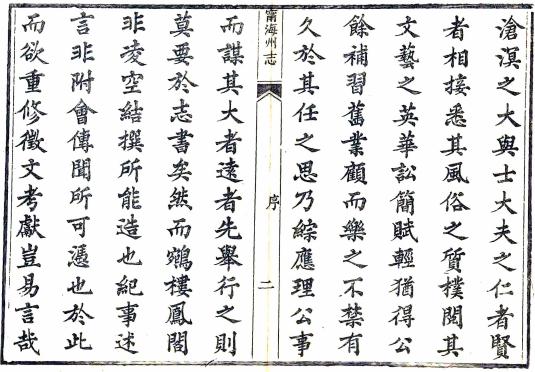 滄溟之大與士大夫之仁者賢
者相接悉其風俗之質樸閱其
文藝之英華訟簡賦輕猶得公
餘補習舊業顧而樂之不禁有
久於其任之思乃綜應理公事
甯海州志
序
二
而謀其大者遠者先舉行之則
莫要於志書矣然而鵷樓鳳閣
非凌空結撰所能造也紀事述
言非附會傳聞所可憑也於此
而欲重修徵文考獻豈易言哉